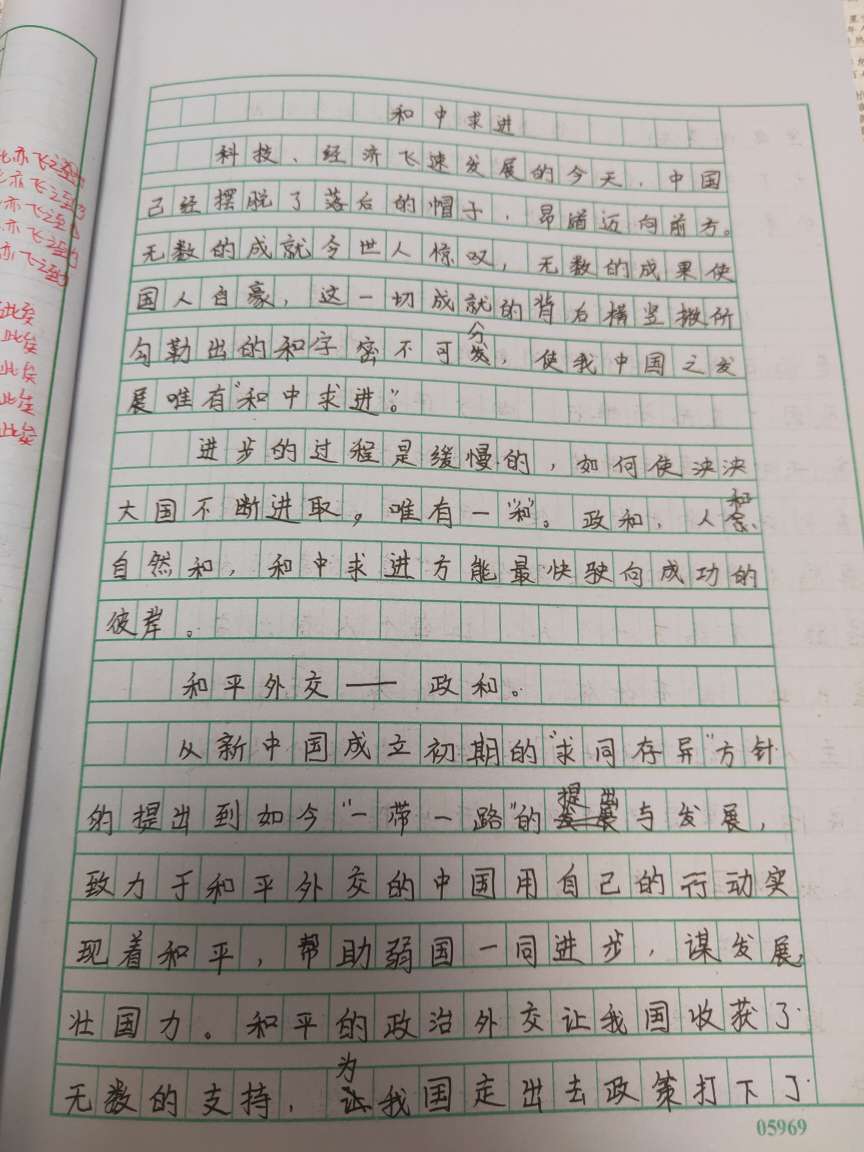 和中求进
科技、经济飞速发展的今天，中国
已经摆脱了落后的帽子，昂首迈向前方。
无数的成就令世人惊叹，无数的成果使
国人自豪，这一切成就的背后横竖撇所
勾勒出的和字密不可分，使我中国之发
展唯有“和中求进”。
进步的过程是缓慢的，如何使泱泱
大国不断进取，唯有一“和”。政和、人和、
自然和，和中求进方能最快驶向成功的
彼岸。
和平外交——政和。
从新中国成立初期的“求同存异”方针
的提出到如今“一带一路”的提出与发展，
致力于和平外交的中国用自己的行动实
现着和平，帮助弱国一同进步，谋发展，
壮国力。和平的政治外交让我国收获了
无数的支持，为我国走出去政策打下了
05969
亦飞之至
亦飞之至
亦飞之至
亦飞之至
亦飞之至
此矣
此矣
此矣
此矣
此矣